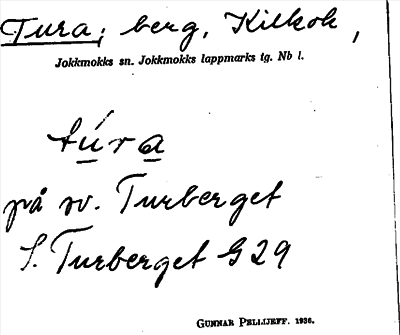 Tura; berg, Kilkok,
Jokkmokks sn. Jokkmokks lappmarks tg. Nb l.
túra
på sv. Turberget
S. Turberget G29
GUNNAR PELLIJEFF. 1936.